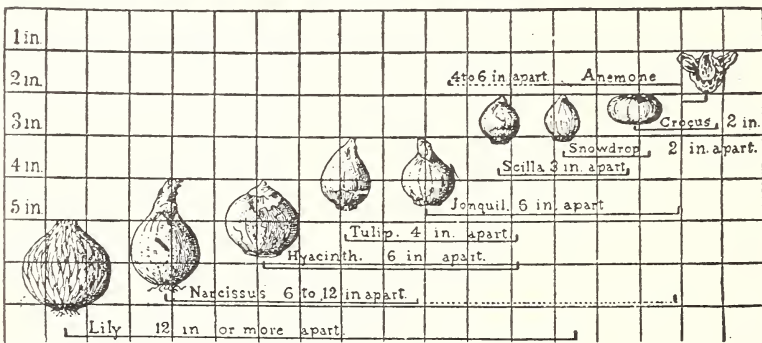 1 in.
2 in.
4 to 6 in. apart. Anemone
3 in.
Crocus 2 in.
Snowdrop 2 in. apart.
4 in.
Scilla 3 in. apart
5 in.
Jonquil. 6 in. apart
Tulip. 4 in. apart.
Hyacinth. 6 in apart.
Narcissus 6 to 12 in apart.
Lily 12 in or more apart.